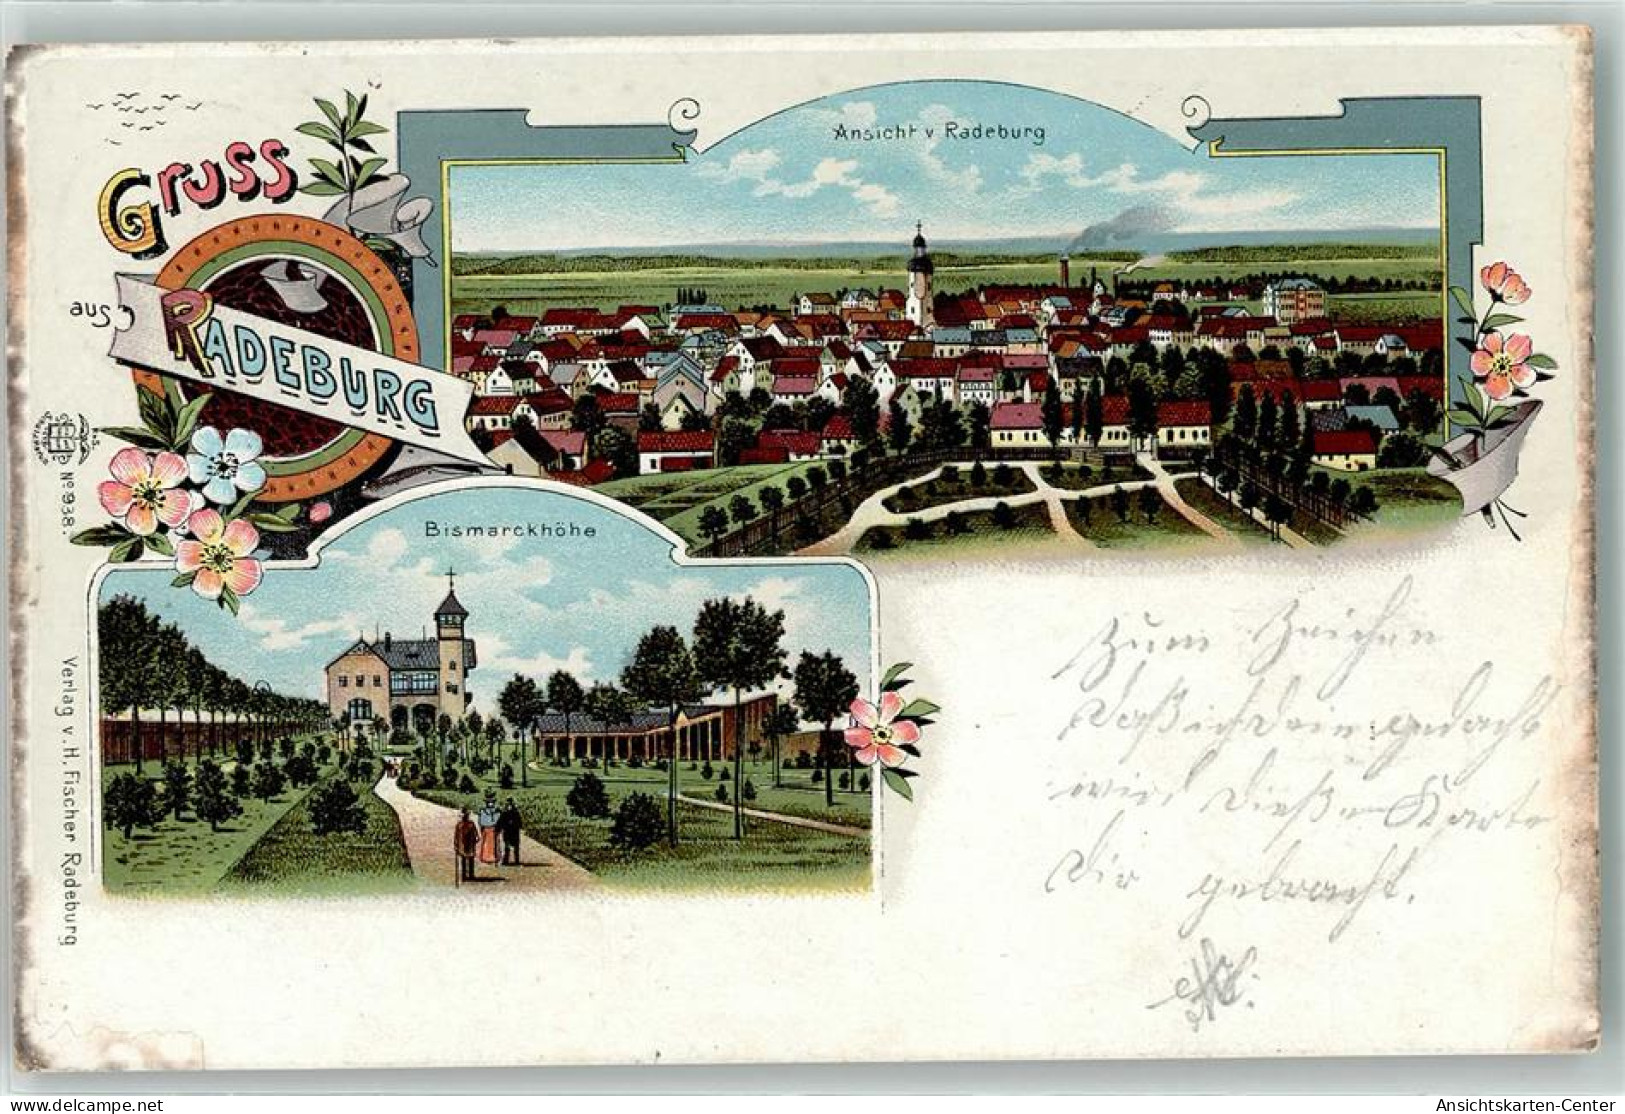 Gruss
aus
RADEBURG
Ansicht v Radeburg
Bismarckhöhe
No 938.
Verlag v. H. Fischer Radeburg
Zum Zeichen
daß ich dein gedacht
wird dieße Karte
dir gebracht.
delcampe.net
Ansichtskarten-Center